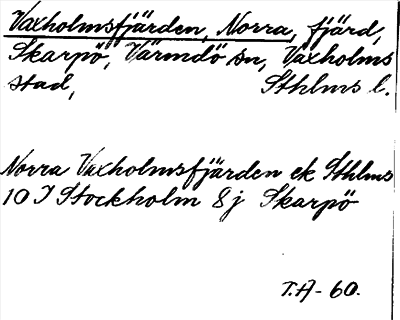 Vaxholmsfjärden, Norra, fjärd,
Skarpö, Värmdö sn, Vaxholms
stad, Sthlms l.
Norra Vaxholmsfjärden ek Sthlms
10 I Stockholm 8j Skarpö
T.A-60.